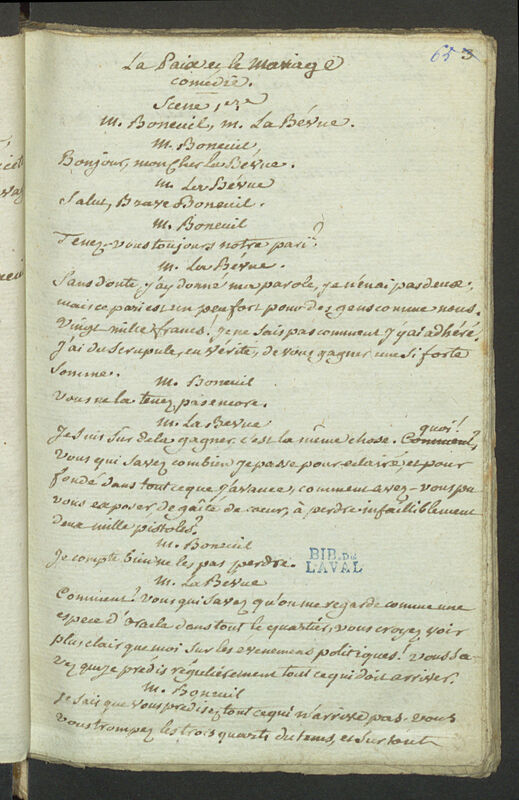 65 3
La Paix et le mariage
comédie.
Scene 1ere
M. Boneuil, m. La Bévue.
M. Boneuil,
Bonjour, mon cher la Bévue.
m. La Bévue
Salut, Brave Boneuil.
M. Boneuil
Tenez-vous toujours notre pari?
M. La Bévue.
Sans doute, j'ay donné ma parole, je n'en ai pas deux,
mais ce pari est un peu fort pour des gens comme nous.
Vingt mille francs! je ne sais pas comment j'y ai adhéré.
J'ai du scrupule, en vérité, de vous gagner une si forte
Somme.
M. Boneuil
Vous ne la tenez pas encore.
M. La Bévue
Je suis sur de la gagner. c'est la même chose. Comment, quoi!
Vous qui savez combien je passe pour eclairé et pour
fondé dans tout ce que j'avance, comment avez-vous pu
vous exposer de gaîté de coeur, à perdre infailliblement
deux mille pistoles?
M. Boneuil
Je compte bien ne les pas perdre.
BIB. DE
LAVAL
M. La Bévue
Comment? Vous qui savez qu'on me regarde comme une
espece d'oracle dans tout le quartier, vous croyez voir
plus clair que moi sur les evenemens politiques! Vous sa-
vez que je predis régulièrement tout ce qui doit arriver.
M. Boneuil
Je sais que vous predisez tout ce qui n'arrive pas. Vous
vous trompez les trois quarts du tems, et surtout